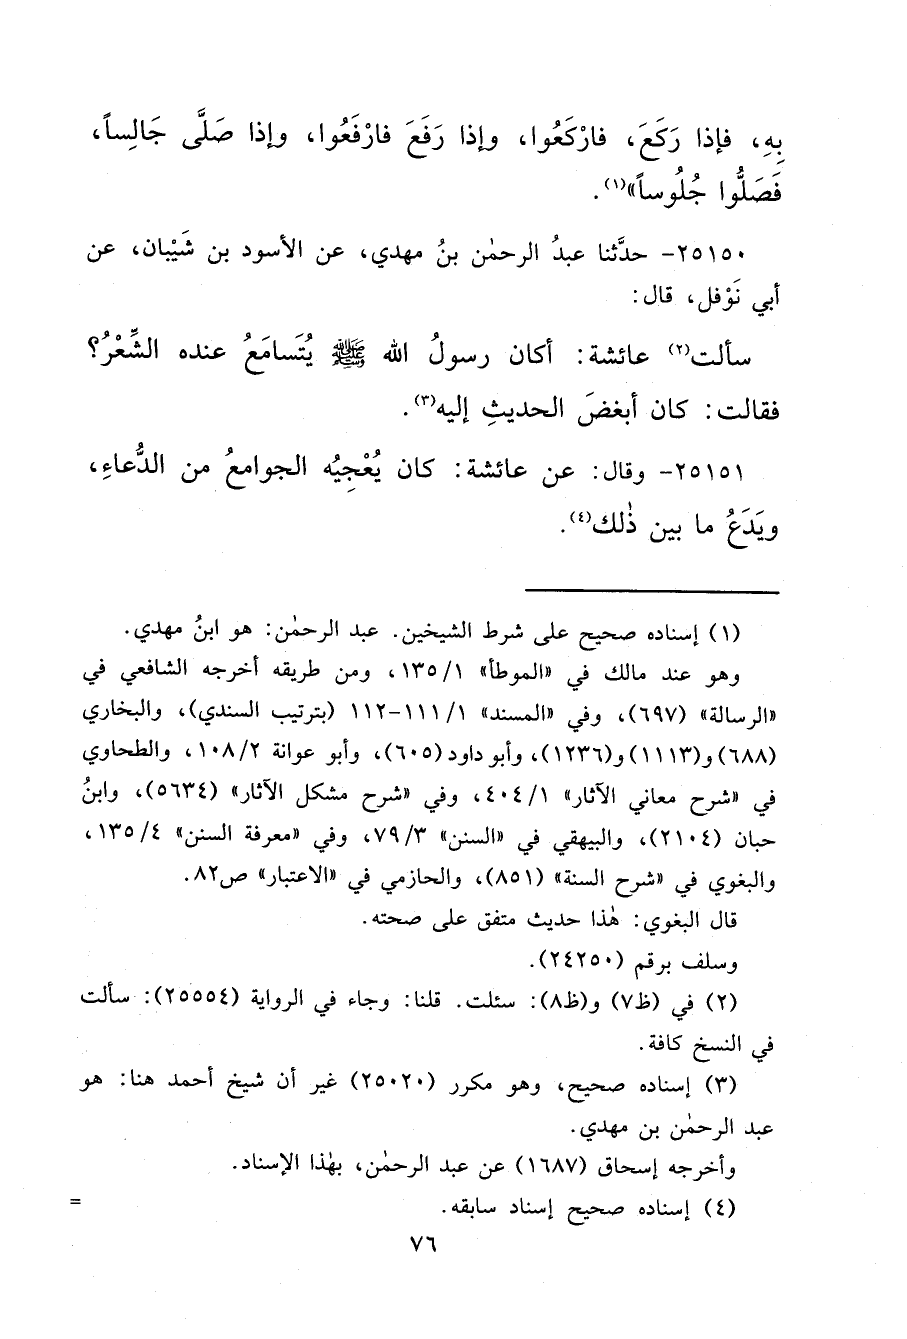 بِهِ، فإذا رَكَعَ، فارْكَعُوا، وإذا رَفَعَ فارْفَعُوا، وإذا صَلَّى جَالِساً،
فَصَلُّوا جُلُوساً»(١).
٢٥١٥٠- حدَّثنا عبدُ الرحمٰن بنُ مهدي، عن الأسود بن شَيْبان، عن
أبي نَوْفل، قال:
سألت(٢) عائشة: أكان رسولُ الله ﷺ يُتَسامَعُ عنده الشِّعْرُ؟
فقالت: كان أبغضَ الحديثِ إليه(٣).
٢٥١٥١- وقال: عن عائشة: كان يُعْجِبُه الجوامعُ من الدُّعاءِ،
ويَدَعُ ما بين ذٰلك(٤).
(١) إسناده صحيح على شرط الشيخين. عبد الرحمٰن: هو ابنُ مهدي.
وهو عند مالك في «الموطأ» ١/ ١٣٥، ومن طريقه أخرجه الشافعي في
«الرسالة» (٦٩٧)، وفي «المسند» ١/ ١١١-١١٢ (بترتيب السندي)، والبخاري
(٦٨٨) و(١١١٣) و(١٢٣٦)، وأبو داود (٦٠٥)، وأبو عوانة ٢/ ١٠٨، والطحاوي
في «شرح معاني الآثار» ١/ ٤٠٤، وفي «شرح مشكل الآثار» (٥٦٣٤)، وابنُ
حبان (٢١٠٤)، والبيهقي في «السنن» ٣/ ٧٩، وفي «معرفة السنن» ٤/ ١٣٥،
والبغوي في «شرح السنة» (٨٥١)، والحازمي في «الاعتبار» ص٨٢.
قال البغوي: هٰذا حديث متفق على صحته.
وسلف برقم (٢٤٢٥٠).
(٢) في (ظ٧) و(ظ٨): سئلت. قلنا: وجاء في الرواية (٢٥٥٥٤): سألت
في النسخ كافة.
(٣) إسناده صحيح، وهو مكرر (٢٥٠٢٠) غير أن شيخ أحمد هنا: هو
عبد الرحمٰن بن مهدي.
وأخرجه إسحاق (١٦٨٧) عن عبد الرحمٰن، بهٰذا الإسناد.
(٤) إسناده صحيح إسناد سابقه.
=
٧٦